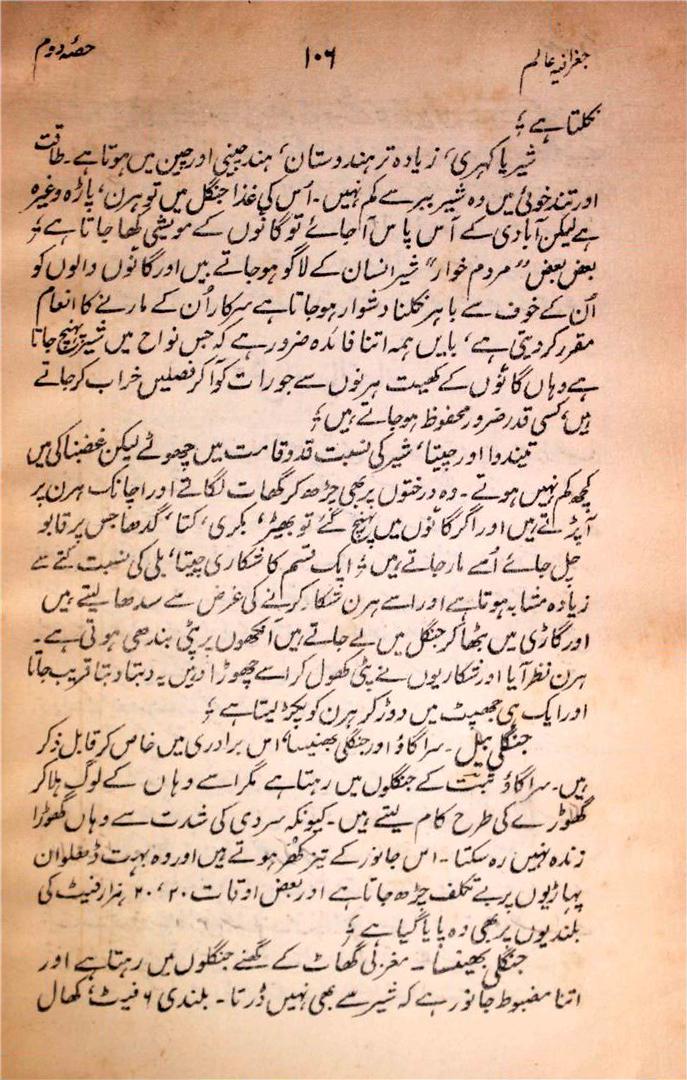 جغرافیہ عالم ۱۰۶ حصّہ دوم
نکلتا ہے ؛
شیر یا کہری، زیادہ تر ہندوستان، ہند چینی اور چین میں ہوتا ہے۔ طاقت
اور تند خوئی میں وہ شیر ببر سے کم نہیں۔ اُس کی غذا جنگل میں تو ہرن، پاڑہ وغیرہ
ہے لیکن آبادی کے آس پاس آجائے تو گانوں کے مویشی کھا جاتا ہے ؛
بعض بعض "مردم خوار" شیر انسان کے لاگو ہوجاتے ہیں اور گانوں والوں کو
اُن کے خوف سے باہر نکلنا دشوار ہوجاتا ہے سرکار اُن کے مارنے کا انعام
مقرر کردیتی ہے، بایں ہمہ اتنا فائدہ ضرور ہے کہ جس نواح میں شیر پہنچ جاتا
ہے وہاں گانوں کے کھیت ہرنوں سے جو رات کو آکر فصلیں خراب کرجاتے
ہیں، کسی قدر ضرور محفوظ ہوجاتے ہیں ؛
تیندوا اور چیتا، شیر کی نسبت قد و قامت میں چھوٹے لیکن غضبناکی میں
کچھ کم نہیں ہوتے۔ وہ درختوں پر بھی چڑھ کر گھات لگاتے اور اچانک ہرن پر
آپڑتے ہیں اور اگر گانوں میں پہنچ گئے تو بھیڑ، بکری، کتا، گدھا جس پر قابو
چل جائے اُسے مار جاتے ہیں ؛ ایک قسم کا شکاری چیتا، بلی کی نسبت کتے سے
زیادہ مشابہ ہوتا ہے اور اسے ہرن شکار کرانے کی غرض سے سدھا لیتے ہیں
اور گاڑی میں بٹھا کر جنگل میں لے جاتے ہیں آنکھوں پر پٹی بندھی ہوتی ہے۔
ہرن نظر آیا اور شکاریوں نے پٹی کھول کر اسے چھوڑا وہیں یہ دبتا دبتا قریب جاتا
اور ایک ہی جھپٹ میں دوڑ کر ہرن کو پکڑ لیتا ہے ؛
جنگلی بیل۔ سراگاؤ اور جنگلی بھینسا، اس برادری میں خاص کر قابل ذکر
ہیں۔ سراگاؤ تبت کے جنگلوں میں رہتا ہے مگر اسے وہاں کے لوگ ہلاکر
گھوڑے کی طرح کام لیتے ہیں۔ کیونکہ سردی کی شدت سے وہاں گھوڑا
زندہ نہیں رہ سکتا۔ اس جانور کے تیز کھُر ہوتے ہیں اور وہ بہت ڈھلوان
پہاڑیوں پر بے تکلف چڑھ جاتا ہے اور بعض اوقات ۲۰، ۲۰ ہزار فیٹ کی
بلندیوں پر بھی وہ پایا گیا ہے ؛
جنگلی بھینسا۔ مغربی گھاٹ کے گھنے جنگلوں میں رہتا ہے اور
اتنا مضبوط جانور ہے کہ شیر سے بھی نہیں ڈرتا۔ بلندی ۶ فیٹ، کھال